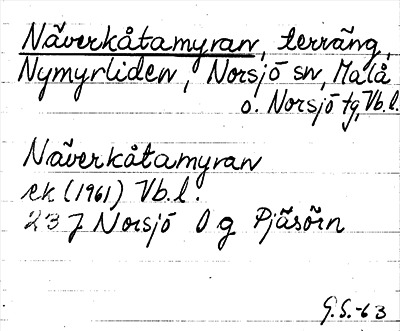 Näverkåtamyran, terräng,
Nymyrliden, Norsjö sn, Malå
o. Norsjö tg, Vb.l.
Näverkåtamyran
ek (1961) Vb.l.
23 J Norsjö 0 g Pjäsörn
G.S.-63